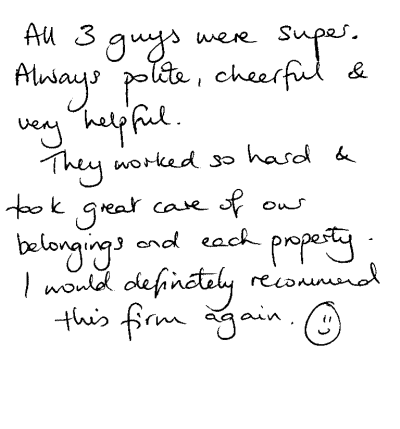 All 3 guys were super.
Always polite, cheerful &
very helpful.
They worked so hard &
took great care of our
belongings and each property.
I would definately recommend
this firm again. ☺